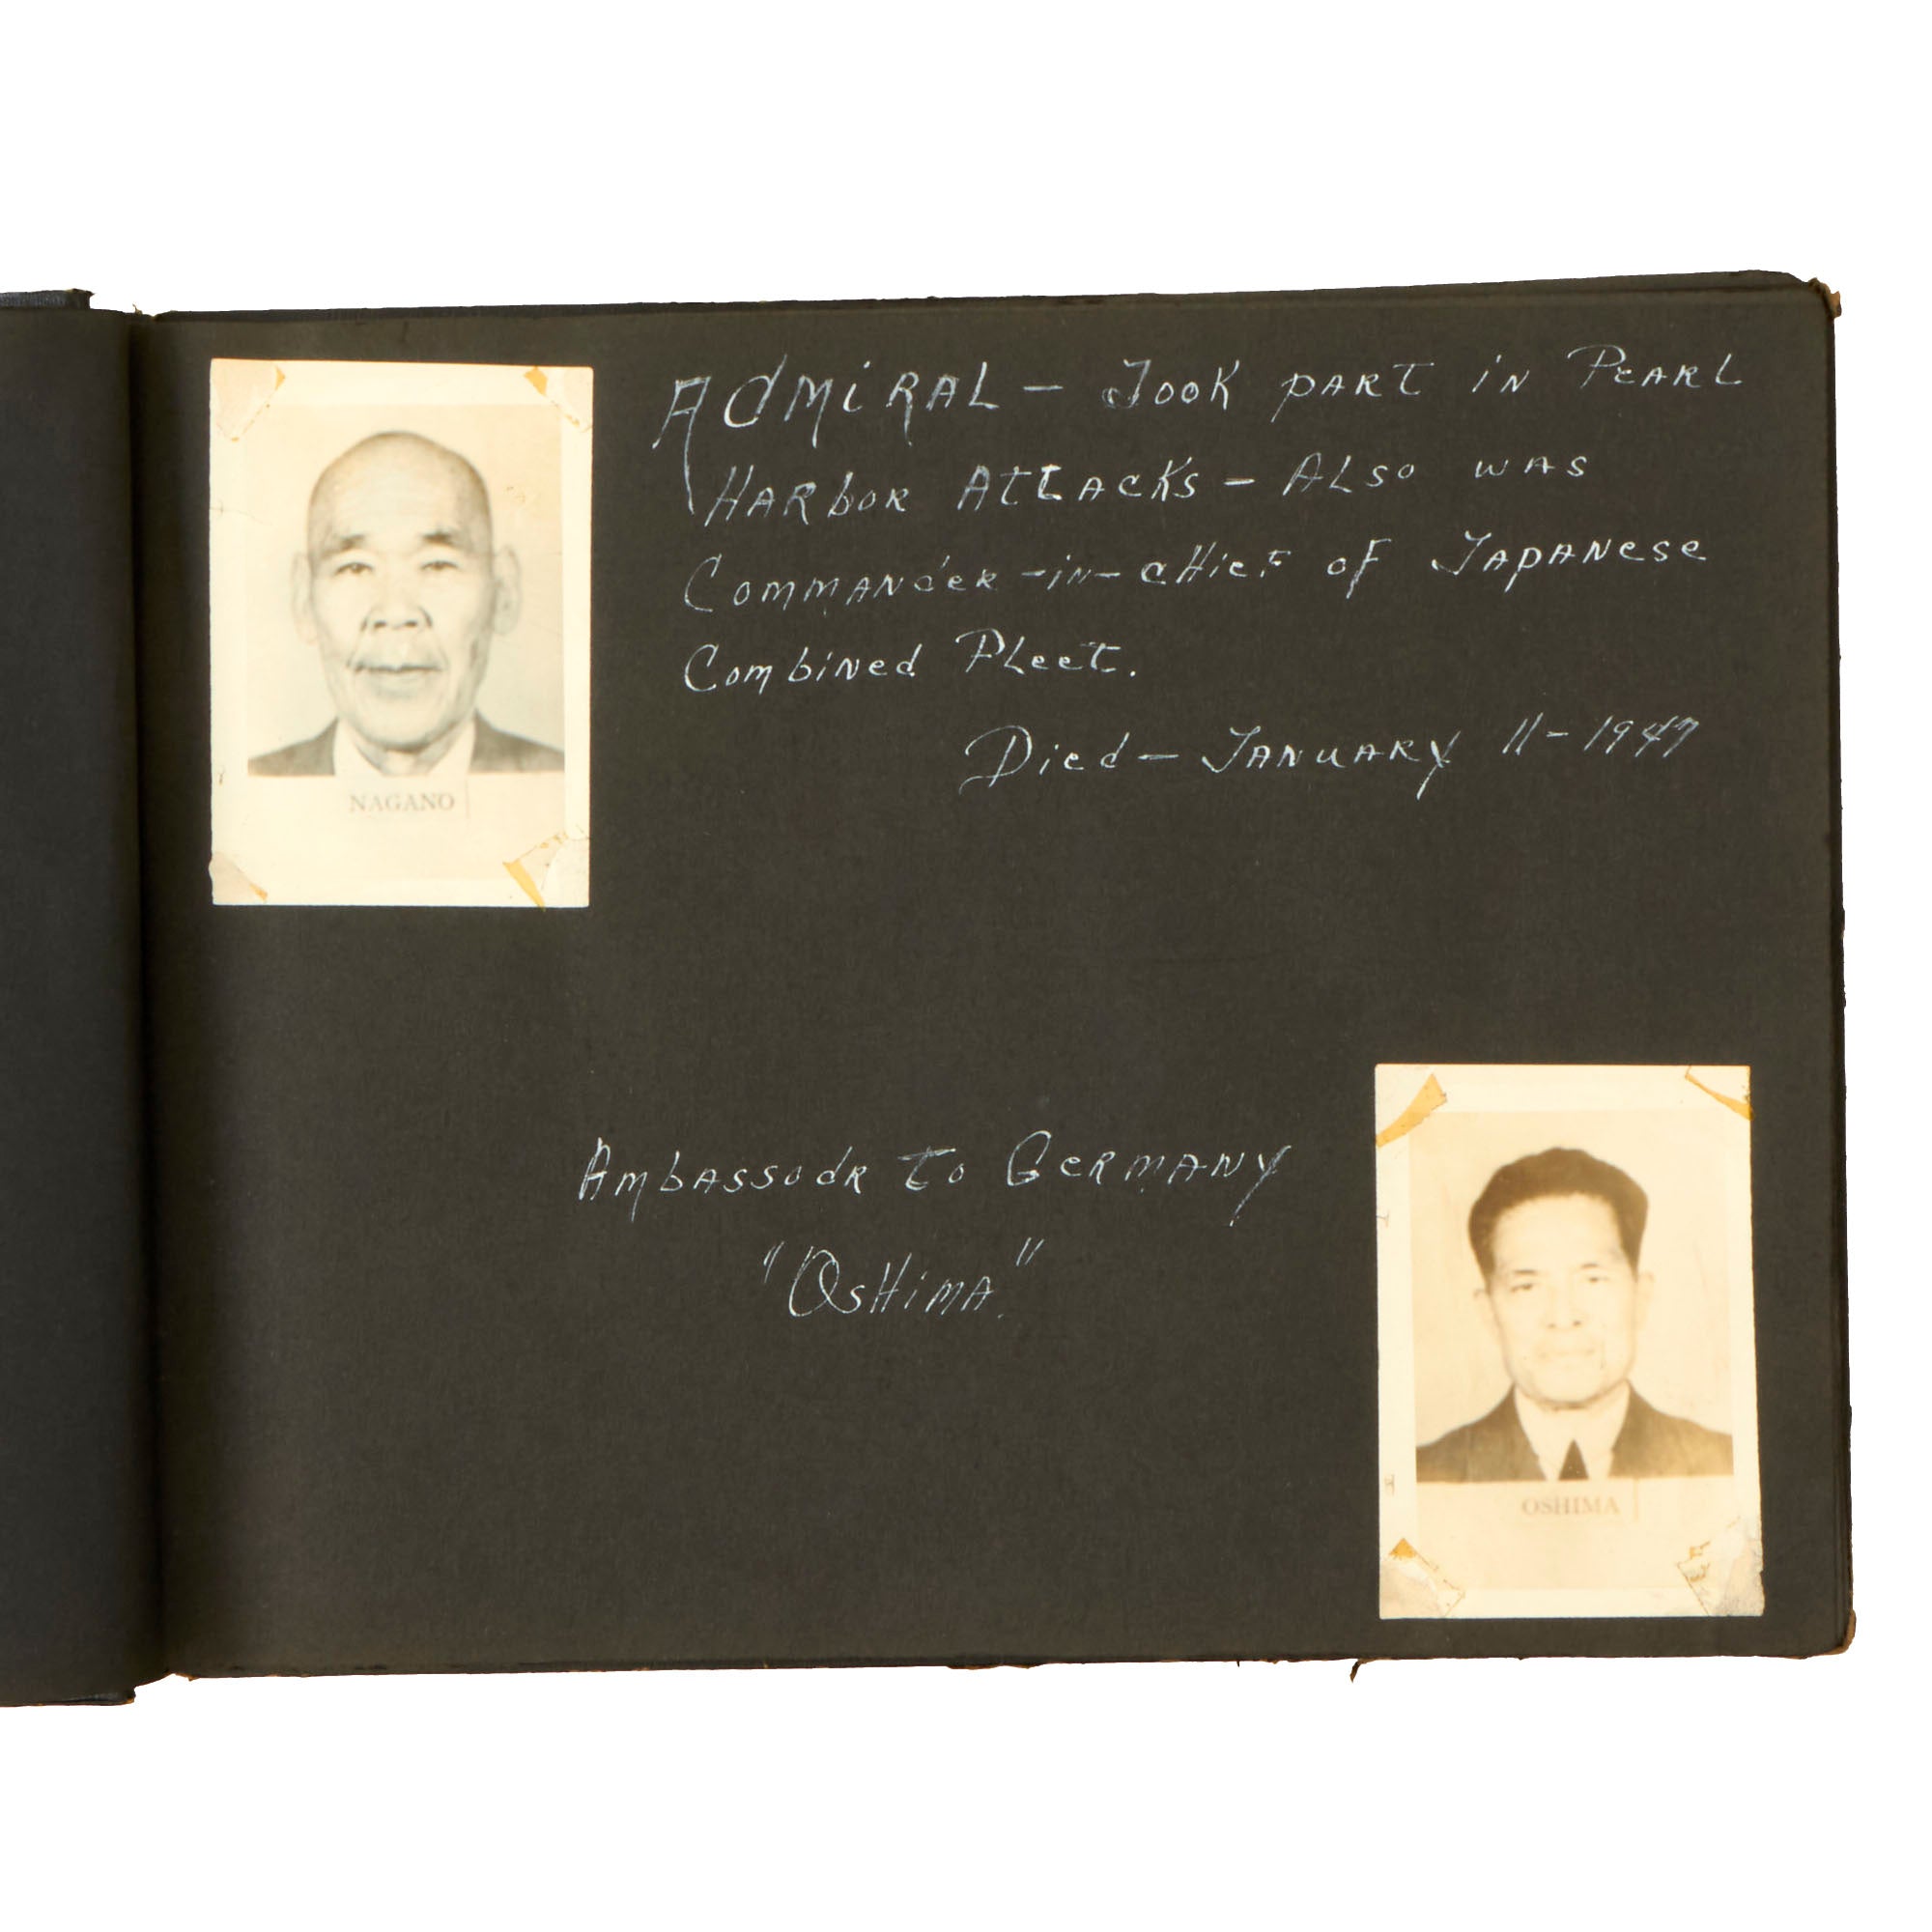 Admiral - Took part in Pearl
Harbor Attacks - Also was
Commander-in-chief of Japanese
Combined Fleet.
Died - January 11 - 1947
NAGANO
Ambassodr to Germany
"Oshima."
OSHIMA